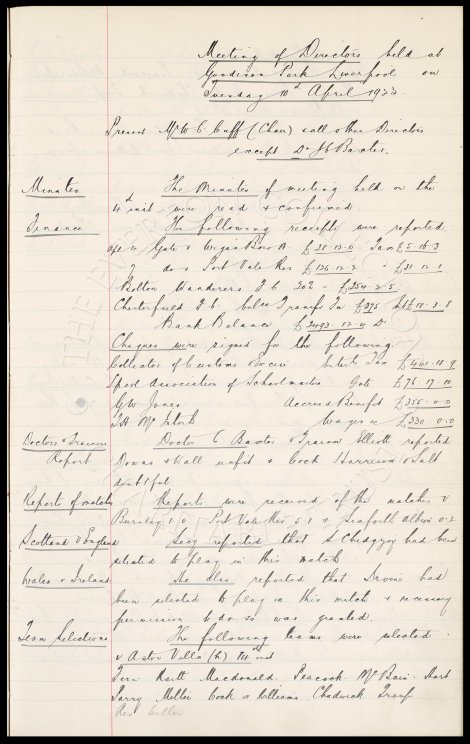 Meeting of Directors held at
Goodison Park Liverpool on
Tuesday 10th April 1923.
Present Mr W. C. Cuff (Chair) & all other Directors
except Dr J C Baxter.
Minutes
The Minutes of meeting held on the
4th inst were read & confirmed.
Finance
The following receipts were reported
Gate v Wigan Boro A. £28-12-0 Tax £5-16-3
7 do v Port Vale Res £136-12-2 £31-12-1
Bolton Wanderers F.C. 20% £254-2-5
Chesterfield F.C. balce Transf £375
Bank Balance £2493-12-4 D
Cheques were signed for the following.
Collector of Customs & Excise Entert Tax £441-18-9
Lpool Association of Schoolmasters Gate £76-17-10
G W Jones Accrued Benefit £355-0-0
T.H. McIntosh Wages £330-0-0
Doctors & Trainers
Report
Doctor C Baxter & Trainer Elliott reported
Downs & Wall unfit & Cock Harrison & Salt
doubtful
Reports of matches
Reports were received of the matches v
Burnley 1/0, Port Vale Res 5.1 & Seaforth Albion 0-2
Scotland v England
Secy reported that S Chedgzoy had been
selected to play in this match
Wales v Ireland
He also reported that Irvine had
been selected to play in this match & necessary
permission to do so was granted.
Team Selections
The following teams were selected.
v Aston Villa (h) 14th inst
Fern Raitt Macdonald. Peacock. McBain. Hart
Parry Miller Cock or Williams. Chadwick Troup
Res